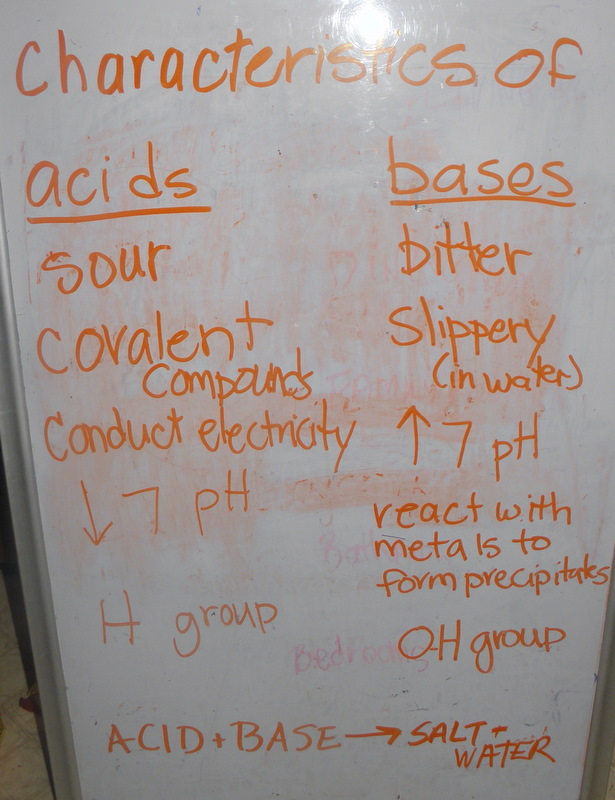 characteristics of
acids
sour
covalent
compounds
conduct electricity
↓ 7 pH
H group
bases
bitter
slippery
(in water)
↑ 7 pH
react with
metals to
form precipitates
OH group
ACID + BASE → SALT +
WATER